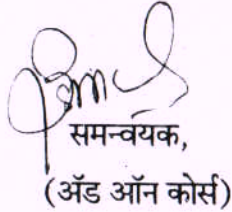 समन्वयक,
(ॲड ऑन कोर्स)